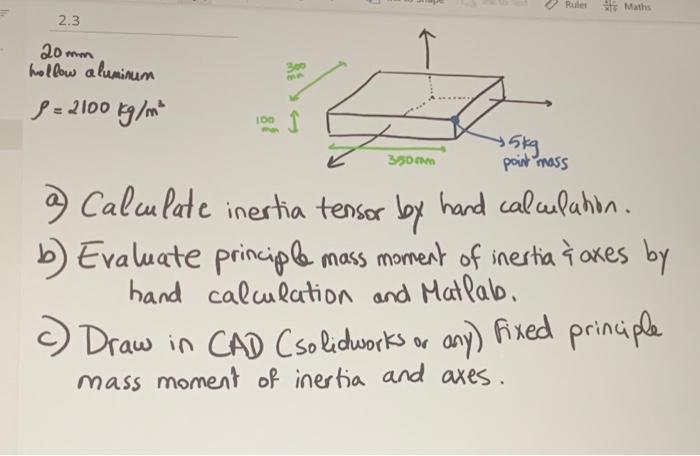 Ruler Maths
2.3
20mm
hollow aluminum
ρ = 2100 kg/m³
300 mm
100 mm
350mm
5kg
point mass
a) Calculate inertia tensor by hand calculation.
b) Evaluate principle mass moment of inertia & axes by
hand calculation and Matlab.
c) Draw in CAD (solidworks or any) fixed principle
mass moment of inertia and axes.